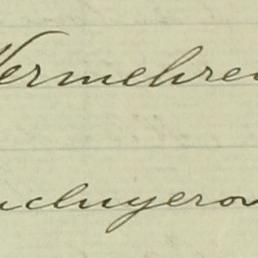 Vermehren
ncluyeron